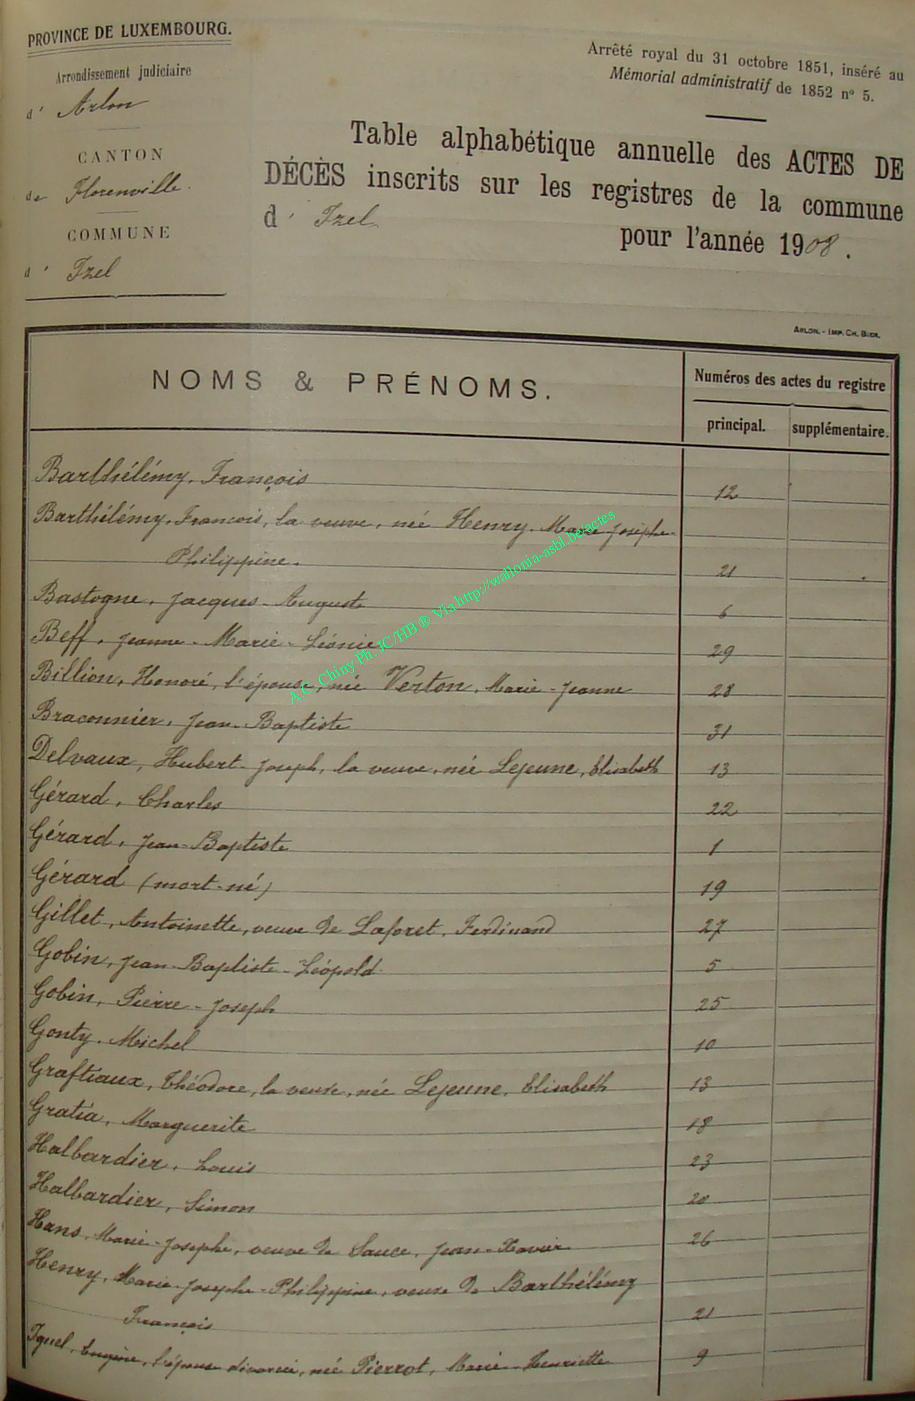 PROVINCE DE LUXEMBOURG.
Arrondissement judiciaire
d' Arlon
CANTON
de Florenville.
COMMUNE
d' Izel
Arrêté royal du 31 octobre 1851, inséré au
Mémorial administratif de 1852 n° 5.
Table alphabétique annuelle des ACTES DE
DÉCÈS inscrits sur les registres de la commune
d' Izel
pour l'année 1908.
ARLON. - IMP. CH.
NOMS & PRÉNOMS.
Numéros des actes du registre
principal. supplémentaire.
Barthélémy, François 12
Barthélémy, François, la veuve, née Henry, Marie-Josèphe-
Philippine. 21
Bastogne, Jacques-Auguste 6
Beff, Jeanne-Marie-Léonie 29
Billion, Honoré, l'épouse, née Verton, Marie-Jeanne 28
Braconnier, Jean-Baptiste 31
Delvaux, Hubert-Joseph, la veuve, née Lejeune, Elisabeth 13
Gérard, Charles 22
Gérard, Jean-Baptiste 1
Gérard (mort-né) 19
Gillet, Antoinette, veuve de Laforet, Ferdinand 27
Gobin, Jean-Baptiste-Léopold 5
Gobin, Pierre-Joseph 25
Gonty, Michel 10
Graftiaux, Théodore, la veuve, née Lejeune, Elisabeth 13
Gratia, Marguerite 18
Halbardier, Louis 23
Halbardier, Simon 20
Hans, Marie-Josèphe, veuve de Sauce, Jean-Xavier 26
Henry, Marie-Josèphe-Philippine, veuve de Barthélémy
François 21
Iguel, Eugène, l'épouse divorcée, née Pierrot, Marie-Henriette 9
A.C. Chiny Ph. JC/HB ® Via http://wallonia-asbl.be/actes